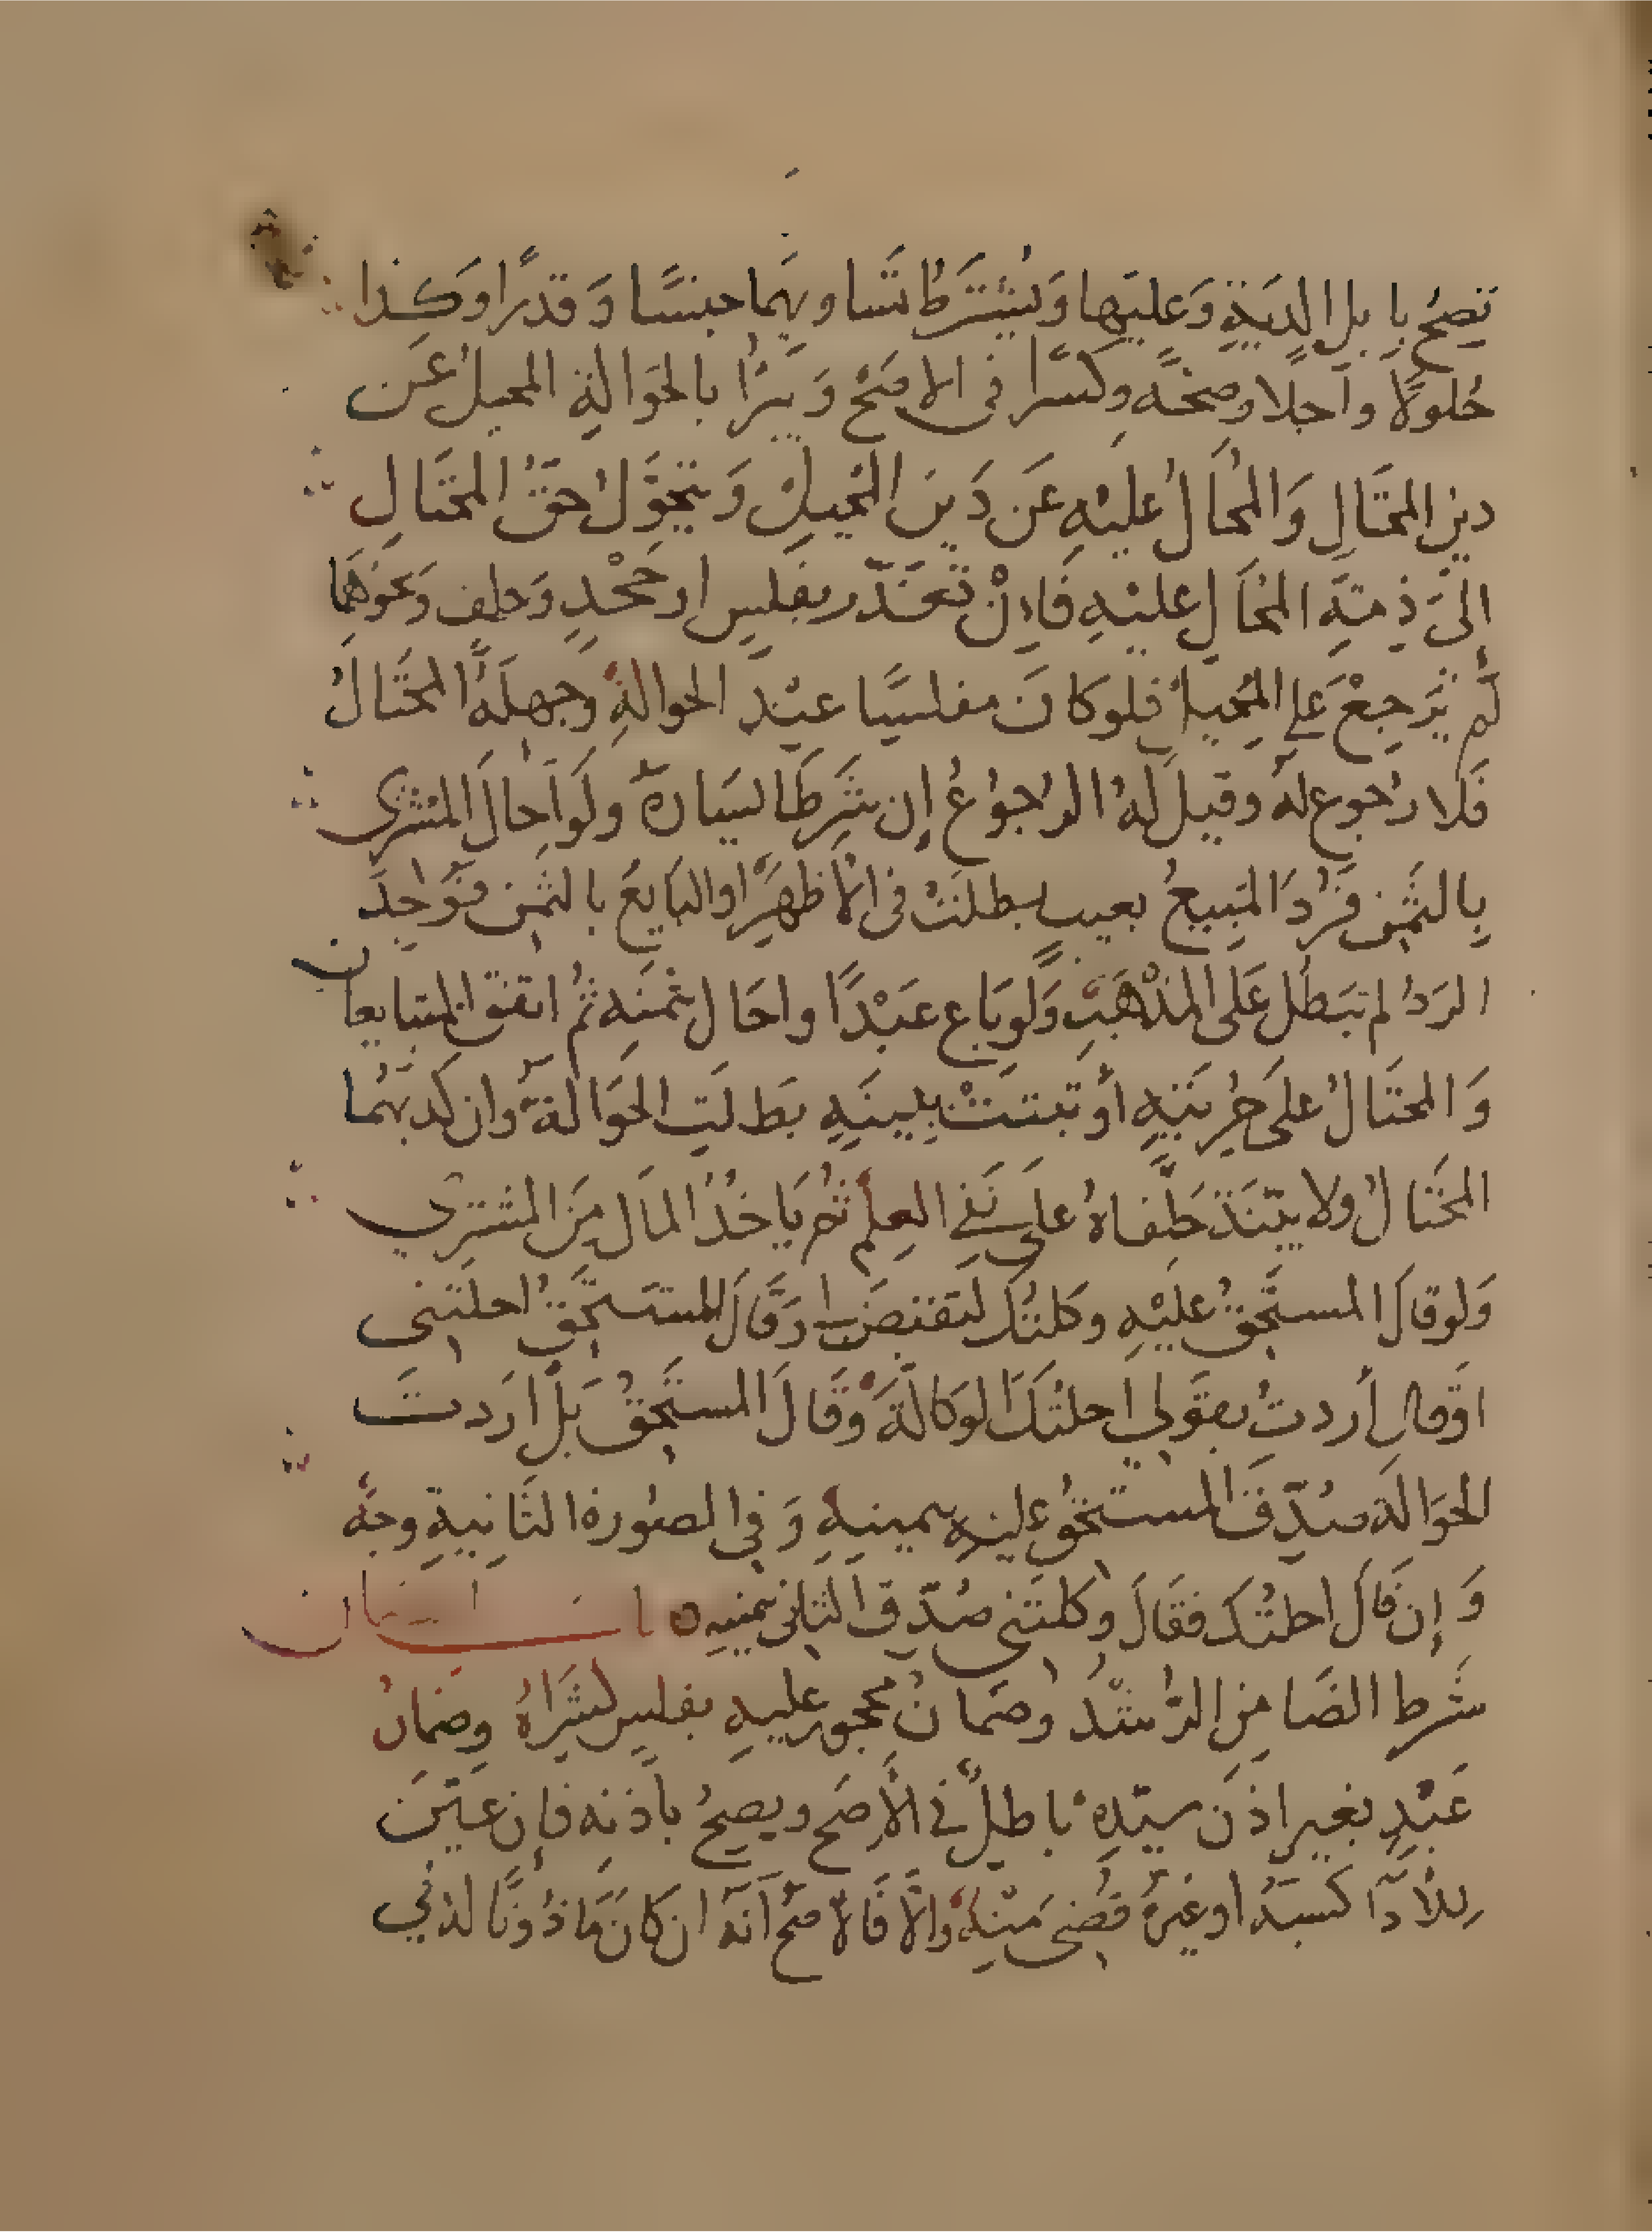 تصِحُّ بِإبل الدِيَةِ وَعليهَا وَيُشْتَرَطُ تسَاويهِمَا جنسًا وَ قدرًا وكَذا
حُلولًا وأجلًا وصحَّةً وكسْرًا في الاصَحِّ وَيبْرَأُ بالحَوالَةِ المحيلُ عَن
دين المحتَالِ وَالمُحَالُ عليْهِ عَن دَينِ المُحيلِ وَيتحَوَّلُ حَقُّ المحتَالِ
إلىَ ذِمَّةِ المُحَالِ عليْهِ فَإِنْ تَعَذَّر بفَلَسٍ او جَحْدٍ وَحلف وَنحوِهَما
لَم يَرجِعْ عَلى المُحيلِ فلو كانَ مفلسًا عنْدَ الحوالَةِ وجهلَهُ المحتَالُ
فَلا رُجوع لهُ وقيلَ لهُ الرجوُعُ إن شَرطَ اليسَارَ ولَو أحالَ المُشترى
بِالثمَنِ فَرُدَّ المَبِيعُ بعيب بطلَتْ في الأظهَرِ او البَايعُ بالثمَن فوُجِدَ
الردُّ لم تبطُل عَلى المذْهَبِ وَلو بَاع عَبْدًا واحَال بثمَنِه ثُم اتفق المتبايعان
وَالمحتَالُ علىَ حُريَتِهِ أو ثبتَتْ بِبينَةٍ بَطلَتِ الحَوَالَة وان كذبَهُمَا
المحتَالُ ولا بيّنَةَ حَلَّفاهُ علىَ نَفي العِلمِ ثُم يَاخُذُ المَال مِنَ المشتري
وَلو قالَ المستَحق عليْهِ وكلتُكَ لتَقبضَ لي وَقالَ المستَحِق احلتَنى
او قال أردتُ بقَولي احلتُكَ الوَكالَةَ وَقالَ المستَحِقُ بَل أرَدت
الحَوَالَة صُدِّقَ المستحقُ عليْهِ بيمينِهِ وَفي الصُورة الثَانيةِ وجهٌ
وَإن قَالَ احلتُكَ فقَالَ وكلتَني صُدِّق الثاني بيمينِهِ
شَرط الضَامِن الرُشدُ وضَمانُ محجورٍ عليهِ بفلسٍ كشِرَاهُ وضمانُ
عَبْدٍ بغير اذن سيّدِهِ باطلٌ في الأصَح ويصِحُ باذنِه فإن عيّنَ
للأدَآءِ كسبَهُ او غيرهُ قُضِى منْهُ وإلَّا فَالاصَحُّ أنهُ ان كانَ مَاذُونًا لهُ في